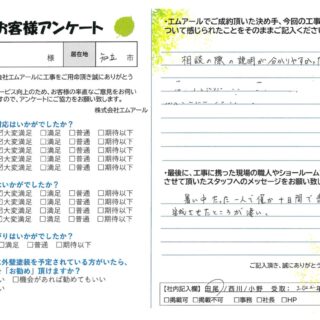 お客様アンケート
様 居在地 知立 市
会社エムアールに工事をご用命頂き誠にありがとう
ービス向上のため、お客様の率直なご意見をお伺い
すので、アンケートにご協力をお願い致します。
株式会社エムアール
対応はいかがでしたか？
大変満足 □満足 □普通 □期待以下
大変満足 □満足 □普通 □期待以下
大変満足 □満足 □普通 □期待以下
はいかがでしたか？
大変満足 □満足 □普通 □期待以下
大変満足 □満足 □普通 □期待以下
大変満足 □満足 □普通 □期待以下
はいかがでしたか？
足 □満足 □普通 □期待以下
がでしたか？
□満足 □普通 □期待以下
に外壁塗装を予定されている方がいたら、
を「お勧め」頂けますか？
い □機会があれば勧めてもいい
・エムアールでご成約頂いた決め手、今回の工事
ついて感じられたことをそのままご記入ください
相談の際の説明が分かりやすか
・最後に、工事に携った現場の職人やショールーム
させて頂いたスタッフへのメッセージをお願い致
暑い中たった一人で僅か十日間で
ご記入頂き、誠にありがとう
【社内記入欄】田尾/西川/小野 受取：
□掲載可 □掲載不可 □事務 □社長 □HP